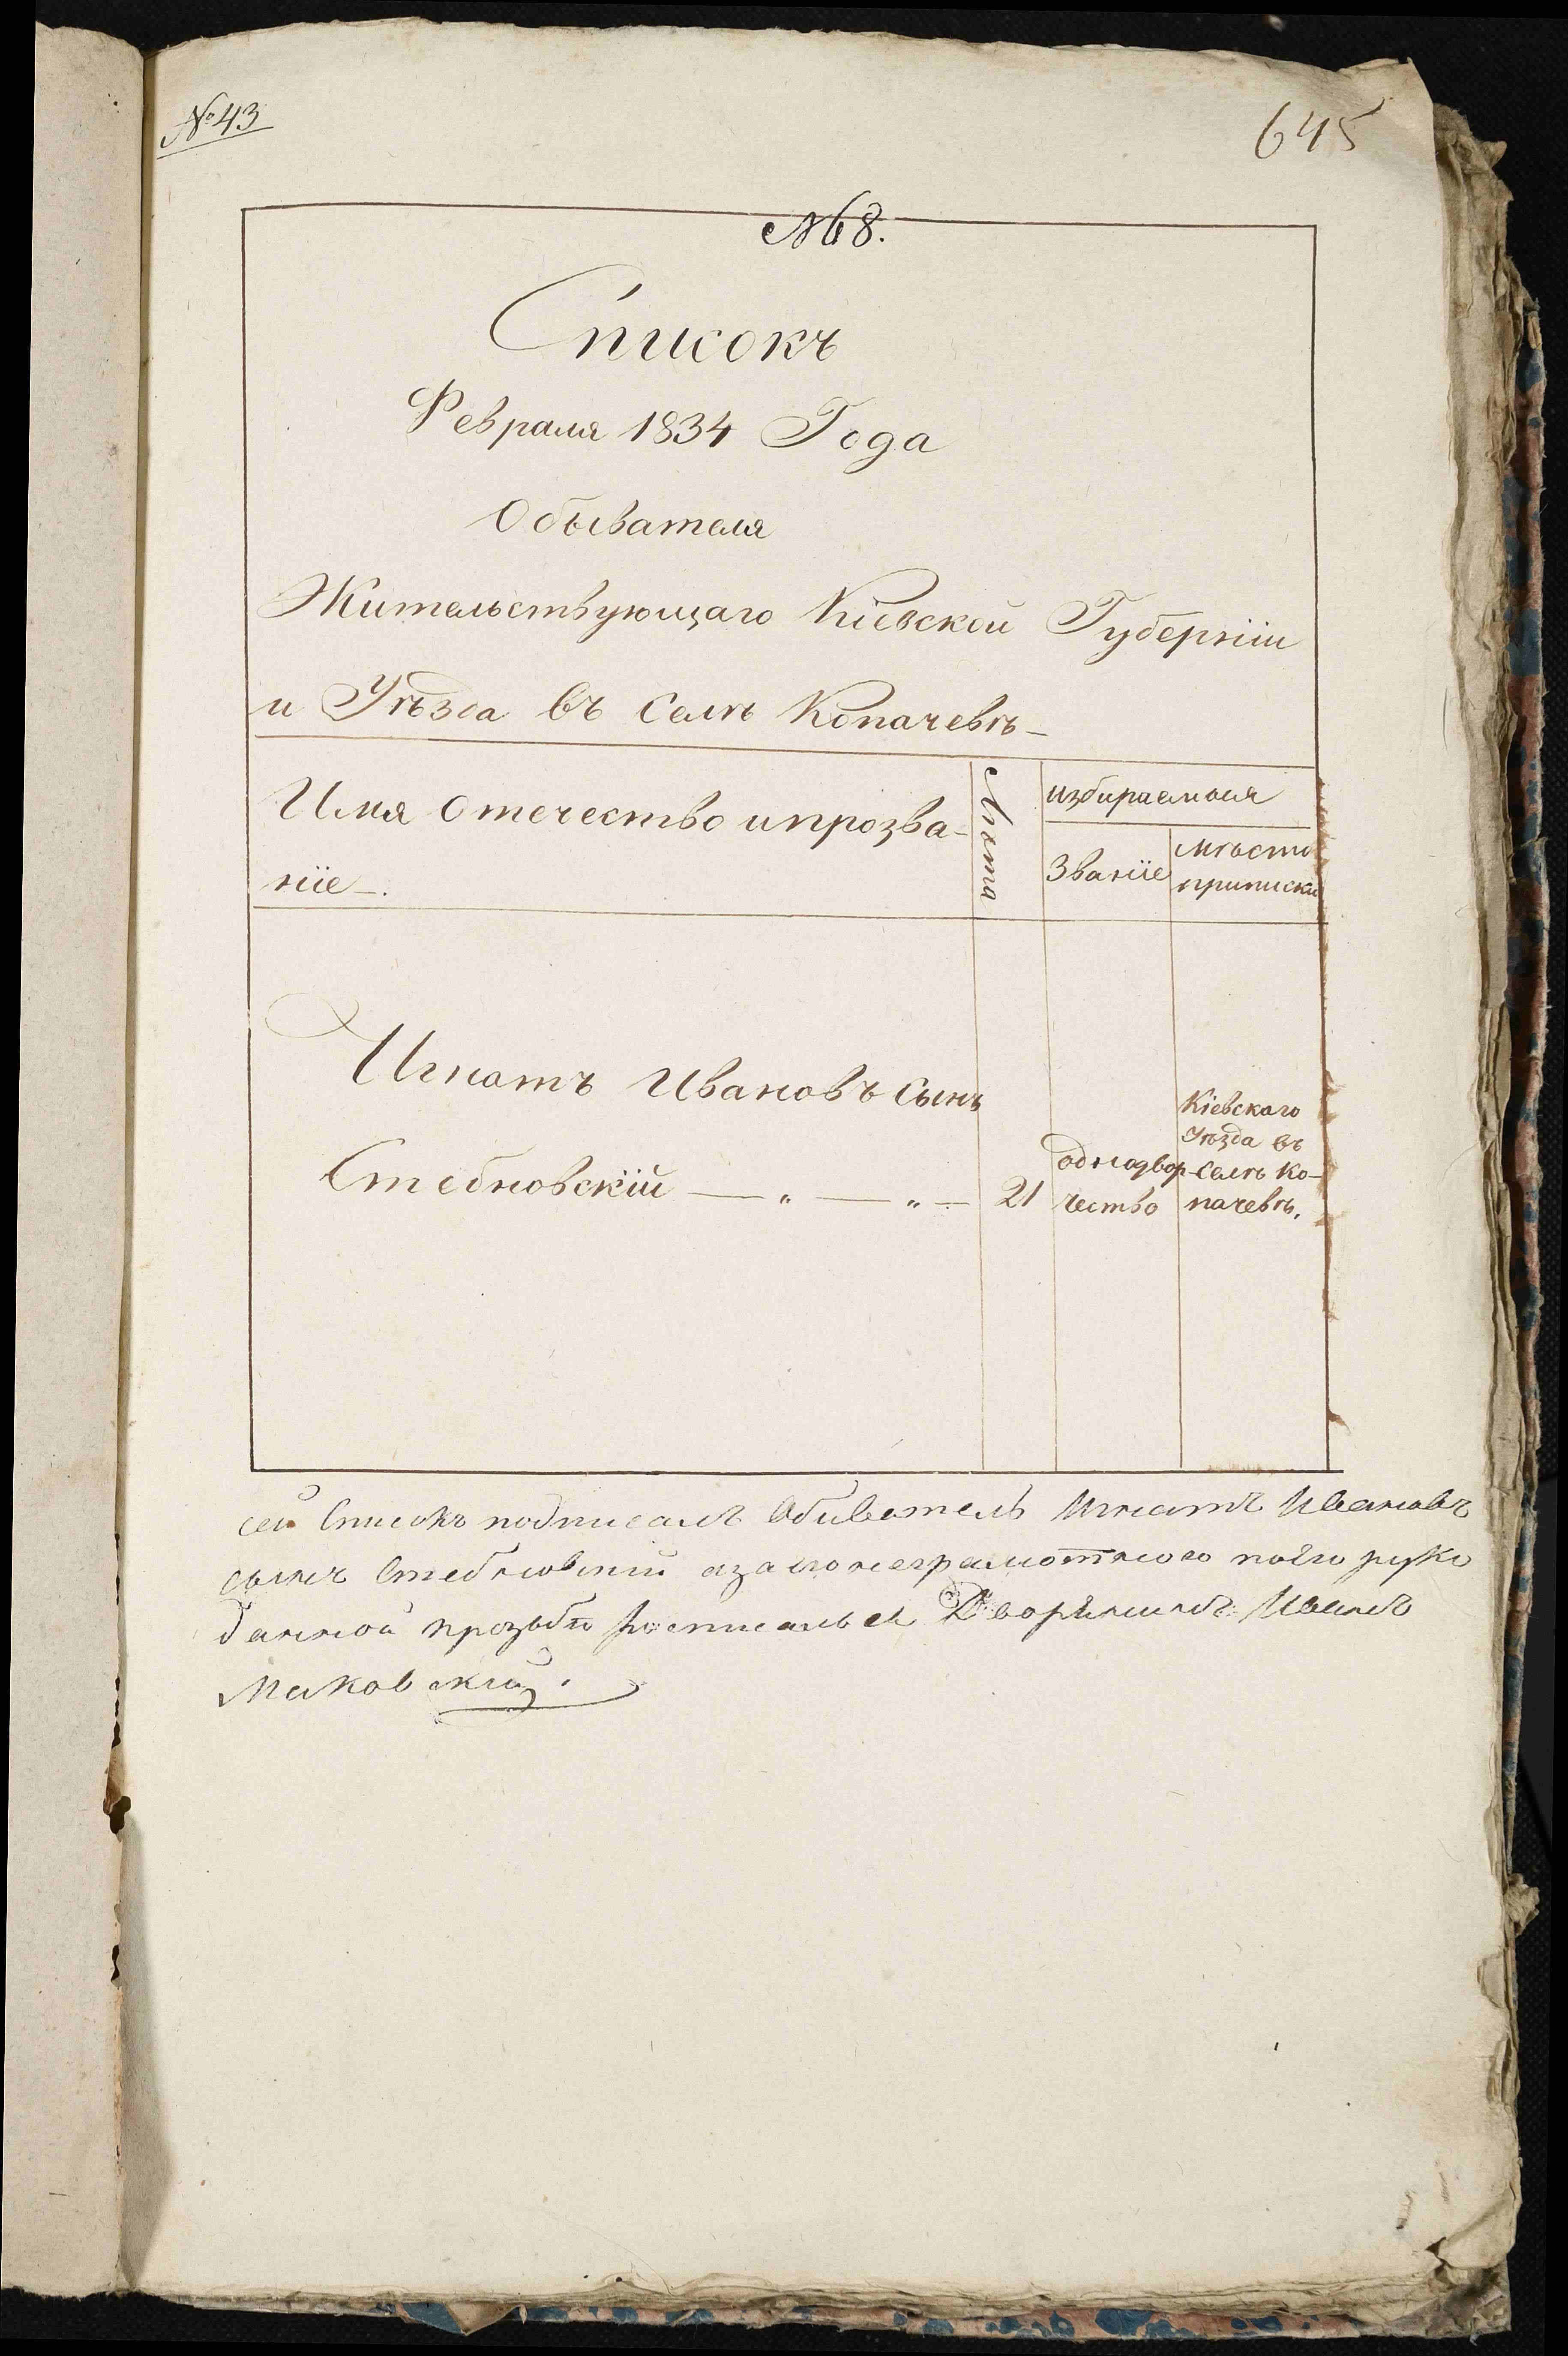 № 43
645
№ 8.
Списокъ
Февраля 1834 Года
Обывателя
Жительствующаго Кіевской Губерніи
и Уѣзда въ Селѣ Копачевѣ
Имя Отечество и прозва-
ніе
Лѣта
избираемыя
Званіе
Мѣсто
приписки
Игнатъ Ивановъ сынъ
Стебновскій — „ — „ —
21
однодвор-
чество
Кіевскаго
Уѣзда въ
Селѣ Ко-
пачевѣ.
сей Списокъ подписалъ Обиватель Игнатъ Ивановъ
сынъ Стебновский а за его неграмотного по его руко
данной прозьбѣ росписалься Дворянинъ Иванъ
Маковский.